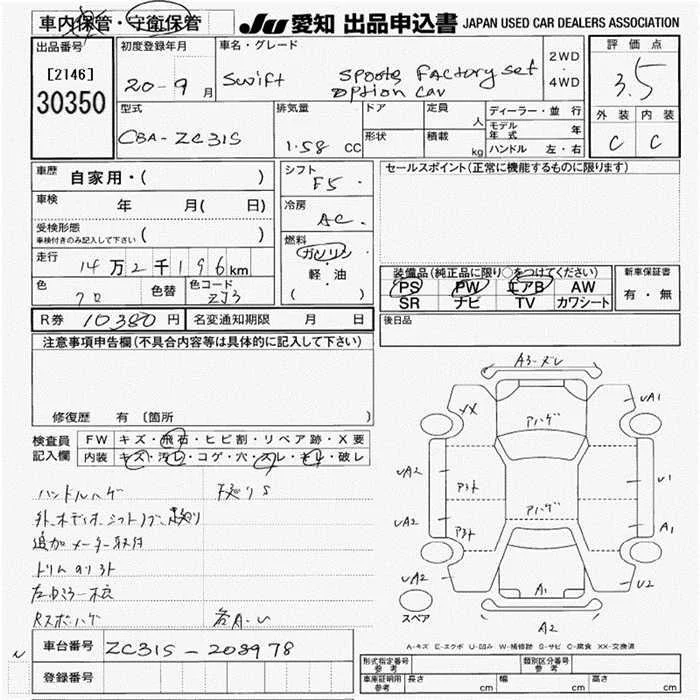 車内保管・守衛保管
JU 愛知 出品申込書 JAPAN USED CAR DEALERS ASSOCIATION
出品番号
[2146]
30350
初度登録年月
20-9月
車名・グレード
Swift Sports Factory set
option car
2WD
・
4WD
評価点
3.5
外装 内装
C C
型式
CBA-ZC31S
排気量
1.58 CC
ドア
定員
人
形状
積載
kg
ディーラー・並行
モデル年式 年
ハンドル 左・右
車歴
自家用・( )
車検
年 月( 日)
受検形態
車検付きのみ記入して下さい ( )
走行
14万2千196km
色
クロ
色替
色コード
ZJ3
シフト
F5
冷房
AC
燃料
ガソリン
軽・油
( )
セールスポイント(正常に機能するものに限ります)
装備品(純正品に限り○をつけてください)
PS PW エアB AW
SR ナビ TV カワシート
新車保証書
有・無
R券 10380円
名変通知期限 月 日
後日品
注意事項申告欄(不具合内容等は具体的に記入して下さい)
修復歴 有〔箇所
検査員
記入欄
FW キズ・飛石・ヒビ割・リペア跡・X要
内装 キズ・汚レ・コゲ・穴・スレ・キレ・破レ
ハンドルハゲ 下廻りS
追加メーター取付
Rスポハゲ 各A・U
車台番号
ZC31S-208978
登録番号
A3・ズレ
XX
アハゲ
UA1
UA2
U1
UA2
アハゲ
A1
UA2
A1
U2
スペア
A2
A-キズ E-エクボ U-凹み W-補修跡 S-サビ C-腐食 XX-交換済
形式指定番号
類別区分番号
車庫証明用参考
長さ cm
幅 cm
高さ cm